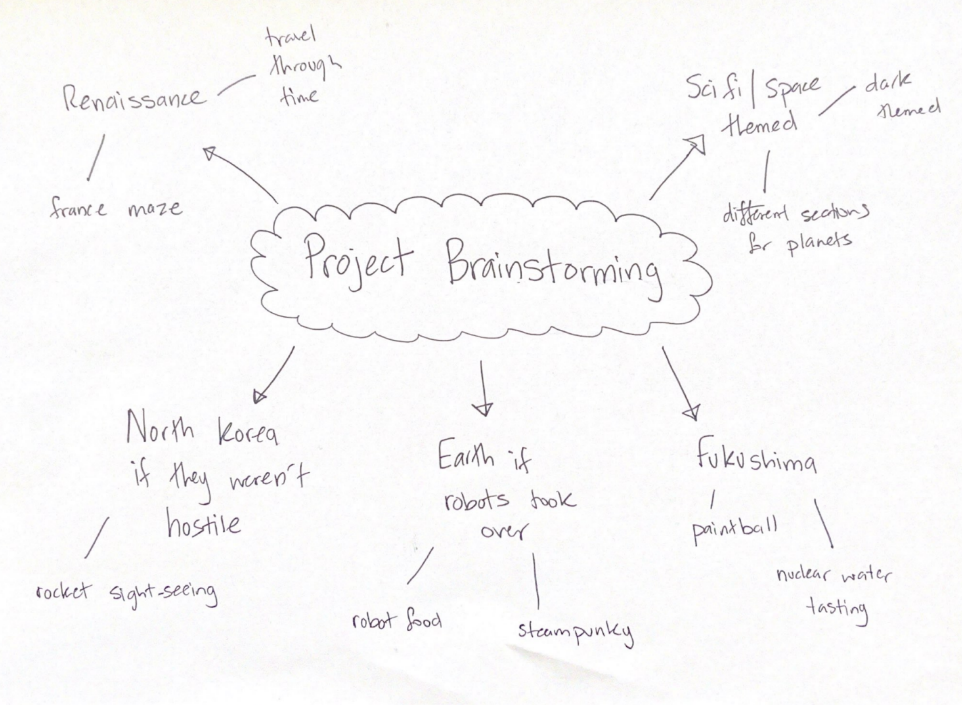 travel
through
time
Renaissance
france maze
Sci fi | Space
themed
dark
themed
different sections
for planets
Project Brainstorming
North Korea
if they weren't
hostile
rocket sight-seeing
Earth if
robots took
over
robot food
steampunky
Fukushima
paintball
nuclear water
tasting